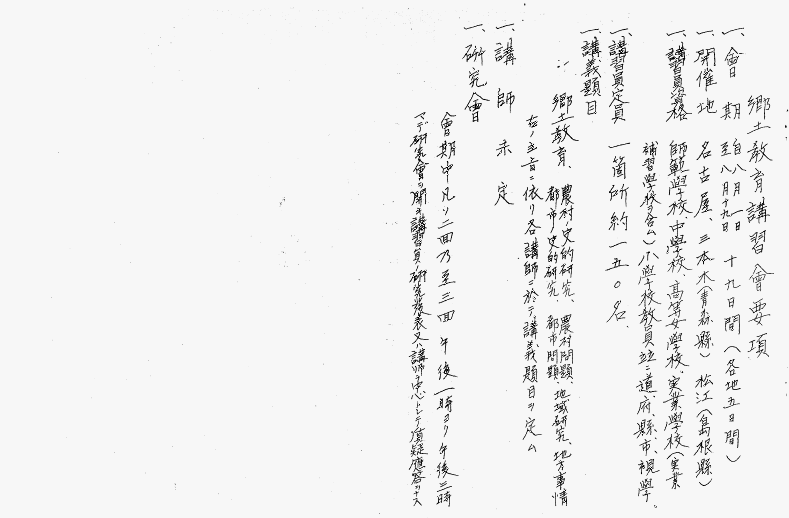 郷土教育講習會要項
一、會期 自八月一日至八月十九日 十九日間(各地五日間)
一、開催地 名古屋、三本木(青森縣) 松江(島根縣)
一、講習員資格 師範學校、中學校、高等女學校、実業學校(実業
補習學校ヲ含ム)小學校教員並ニ道、府、縣、市、視學。
一、講習員定員 一箇所約一五〇名.
一、講義題目
郷土教育、農村ノ史的研究、農村問題、地域研究、地方事情
都市ノ史的研究、都市問題、
右ノ主旨ニ依リ各講師ニ於テ講義題目ヲ定ム
一、講師 未定
一、研究會
會期中凡ソ二回乃至三回 午後一時ヨリ午後三時
マデ研究會ヲ開キ講習員ノ研究發表又ハ講師ヲ中心トシテ質疑應答ヲナス